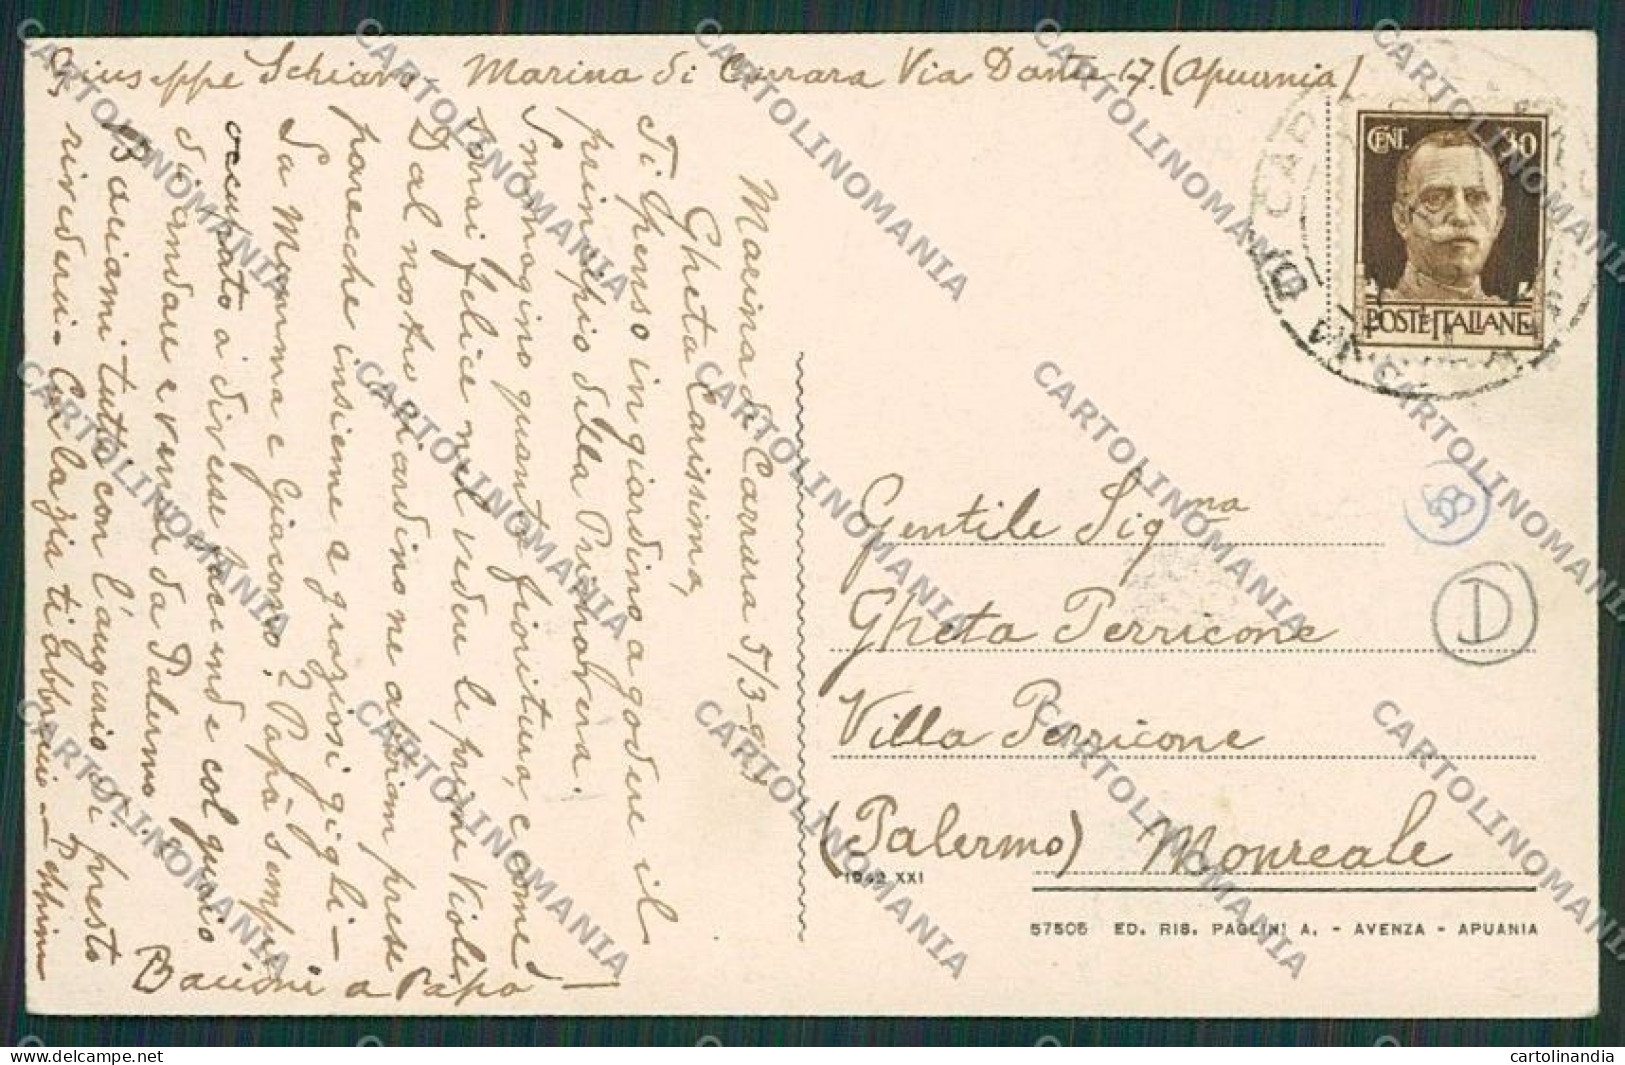 Giuseppe Schiavo Marina di Carrara Via Dante 17. (Apuania)
Marina di Carrara 5/3-
Gheta Carissima,
Ti penso in giardino a godere il
principio della Primavera.
Immagino quanta fioritura, e come
sarai felice nel vedere le prime Viole,
Dal nostro giardino ne abbiam prese
parecche insieme a graziosi gigli -
La Mamma e Giacomo? Papà sempre
occupato a diverse faccende e col
di andare e venire da Palermo.
Baciami tutti con l'augurio di presto
rivederci - Con la zia ti abbraccio - Peppino
Bacioni a Papà -
CENT. 30
POSTE ITALIANE
Gentile Sigma
Gheta Perricone
Villa Perricone
(Palermo) Monreale
D
1942 XXI
57505 ED. RIS. PAGLINI A. - AVENZA - APUANIA
CARTOLINOMANIA
cartolinandia